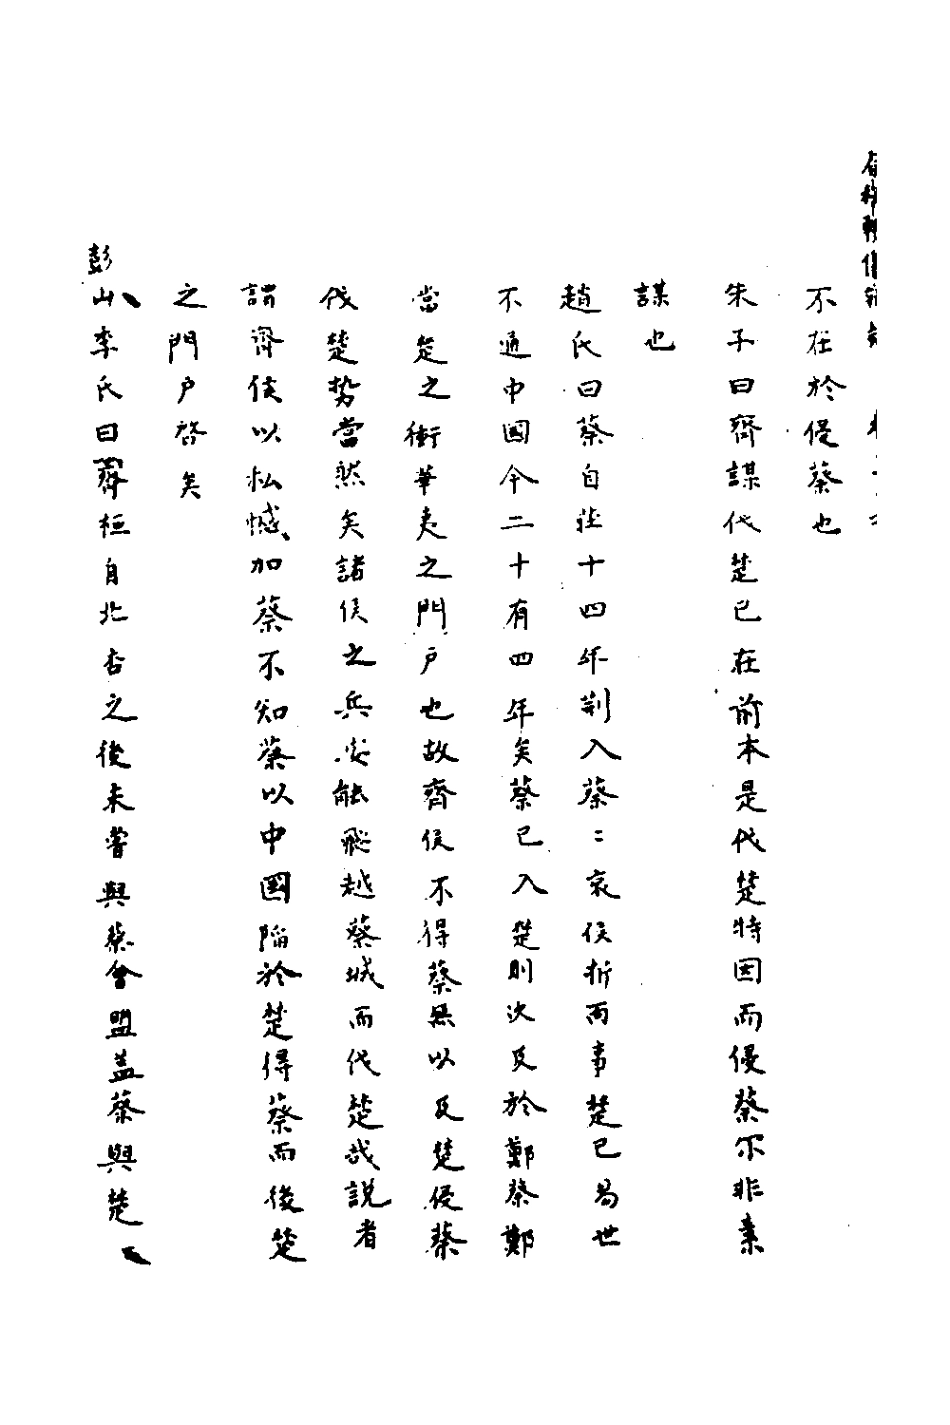 不在於侵蔡也
朱子曰齊謀伐楚已在前本是伐楚特因而侵蔡尔非素
謀也
趙氏曰蔡自莊十四年荆入蔡二哀侯折而事楚已易世
不通中國今二十有四年矣蔡已入楚則次及於鄭蔡鄭
當楚之衝華夷之門戶也故齊侯不得蔡無以及楚侵蔡
伐楚势當然矣諸侯之兵安能飛越蔡城而伐楚哉説者
謂齊侯以私憾加蔡不知蔡以中國陷於楚得蔡而後楚
之門户啓矣
彭山李氏曰齊桓自北杏之後未嘗與蔡會盟盖蔡與楚